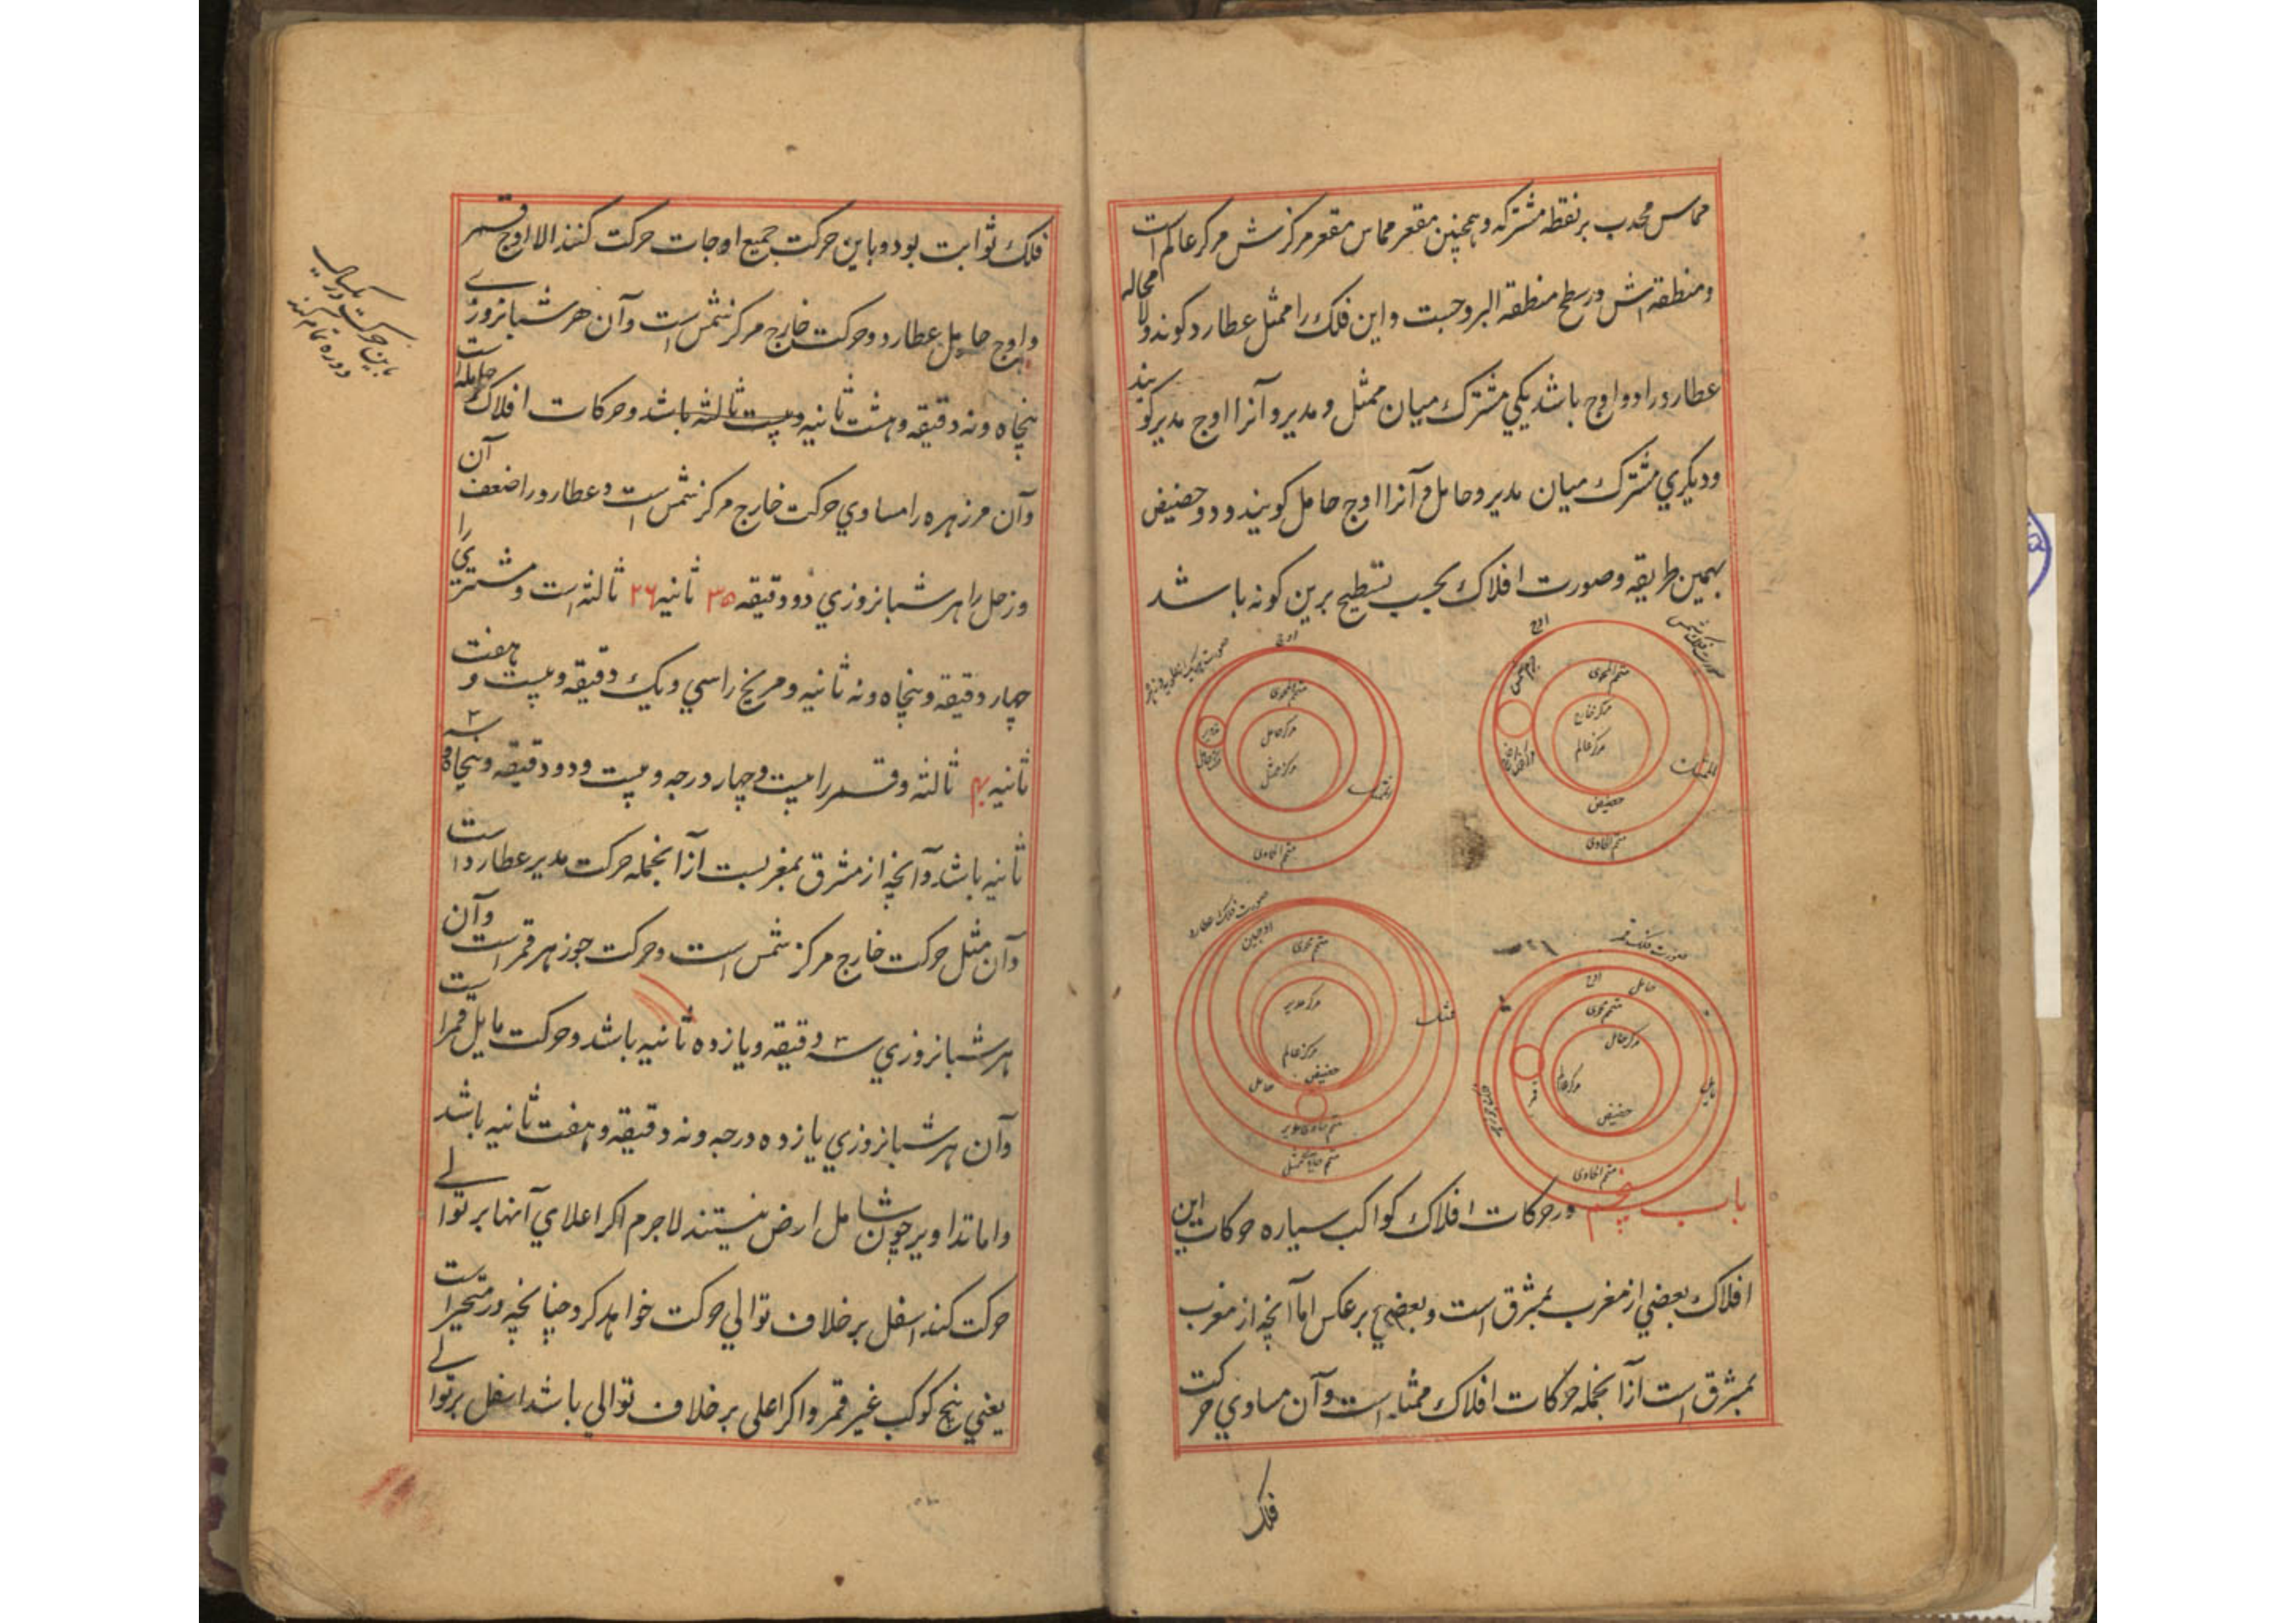 مماس محدب بر نقطه مشترکه و همچنین مقعر مماس مقعر مرکزش مرکز عالم است
و منطقه اش در سطح منطقه البروجست و این فلک را ممثل عطارد کویند و لا محاله
عطارد را دو اوج باشد یکی مشترک میان ممثل و مدیر و آنرا اوج مدیر کویند
و دیکری مشترک میان مدیر و حامل و آنرا اوج حامل کویند و دو حضیض
بهمین طریقه و صورت افلاک بحسب تسطیح برین کونه باشد
صورت فلک شمس
اوج
متمم المحوی
مرکز خارج
مرکز عالم
حضیض
متمم الحاوی
اوج
متمم المحوی
مرکز حامل
مرکز ممثل
متمم الحاوی
صورت فلک عطارد
اوجین
متمم محوی
مرکز مدیر
مرکز عالم
حضیض
حامل
متمم حاوی مدیر
صورت فلک قمر
اوج
حامل
متمم محوی
مرکز حامل
مرکز عالم
مایل
حضیض
متمم الحاوی
باب پنجم در حرکات افلاک کواکب سیاره حرکات این
افلاک بعضی از مغرب بمشرق است و بعضی برعکس اما آنچه از مغرب
بمشرق است از آنجمله حرکات افلاک ممثله است و آن مساوی حرکت
فلک
فلک ثوابت بود و باین حرکت جمیع اوجات حرکت کنند الا اوج قمر
و اوج حامل عطارد و حرکت خارج مرکز شمس است و آن هر شبانروزی
پنجاه و نه دقیقه و هشت ثانیه و بیست ثالثه باشد و حرکات افلاک حامله است
و آن مر زهره را مساوی حرکت خارج مرکز شمس است و عطارد را ضعف آن
و زحل را هر شبانروزی دو دقیقه ۳۵ ثانیه ۲۶ ثالثه است و مشتری را
چهار دقیقه و پنجاه و نه ثانیه و مریخ را سی و یک دقیقه و بیست و هفت
ثانیه ۴۰ ثالثه و قمر را بیست و چهار درجه و بیست و دو دقیقه و پنجاه و سه
ثانیه باشد و آنچه از مشرق بمغربست از آنجمله حرکت مدیر عطارد است
و آن مثل حرکت خارج مرکز شمس است و حرکت جوزهر قمر است و آن
هر شبانروزی سه دقیقه و یازده ثانیه باشد و حرکت مایل قمر است
و آن هر شبانروزی یازده درجه و نه دقیقه و هفت ثانیه باشد
و اما تداویر چون شامل ارض نیستند لاجرم اکر اعلای آنها بر توالی
حرکت کند اسفل بر خلاف توالی حرکت خواهد کرد چنانچه در متحیره است
یعنی پنج کوکب غیر قمر و اکر اعلی بر خلاف توالی باشد اسفل بر توالی
باین حرکت در یکسال
دوره تمام کند